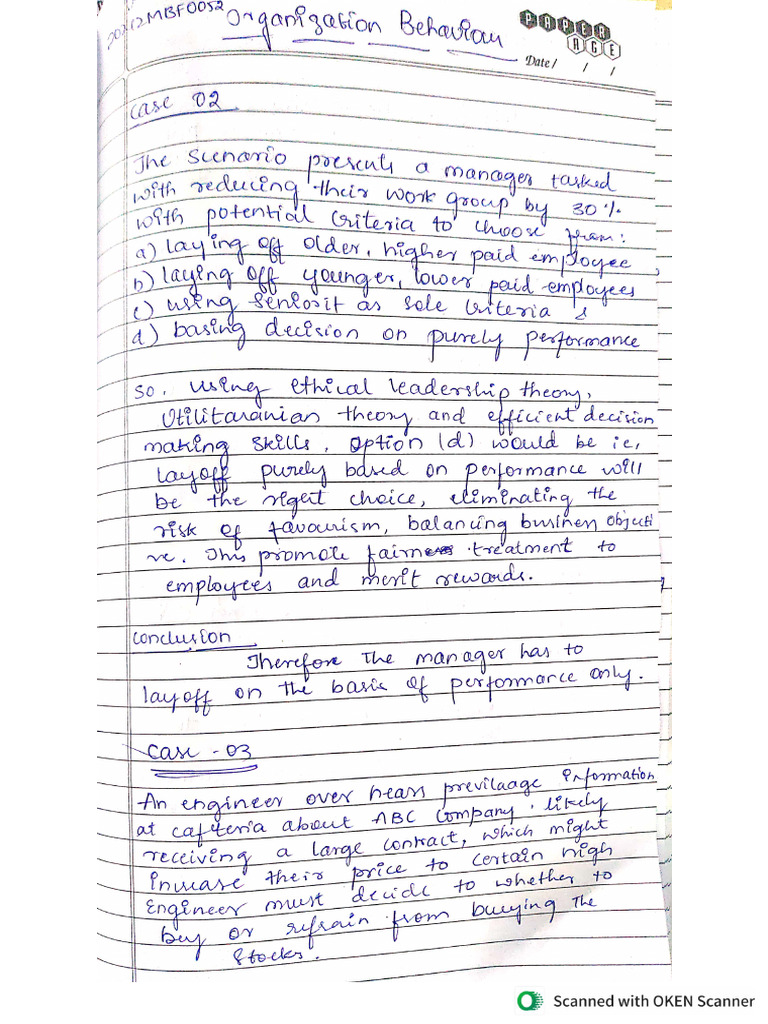 Organization Behaviour
PAPER
AGE
Date / / /
Case 02
The Scenario presents a manager tasked
with reducing their work group by 30%
with potential Criteria to choose from:
a) laying off older, higher paid employee,
b) laying off younger, lower paid employees
c) using seniorit as sole Criteria &
d) basing decision on purely performance
So, using ethical leadership theory,
Utilitaranian theory and efficient decision
making skills, option (d) would be ie,
layoff purely based on performance will
be the rigert choice, eliminating the
risk of favourism, balancing business objecti
ve. This promote fairness treatment to
employees and merit rewards.
Conclusion
Therefore The manager has to
layoff on the basis of performance only.
Case - 03
An engineer over hears previlaage Information
at cafeteria about ABC Company, likely
receiving a large contract, which might
increase their price to certain high
Engineer must decide to whether to
buy or refrain from buying The
Stocks.
Scanned with OKEN Scanner